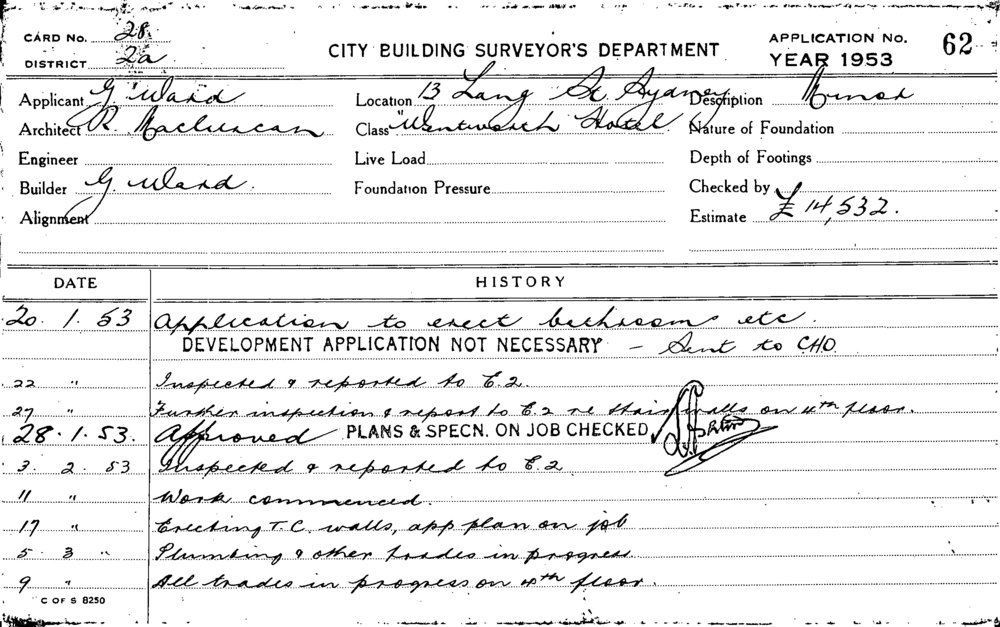 CARD No. 28.
DISTRICT 2a
CITY BUILDING SURVEYOR'S DEPARTMENT
APPLICATION No. 62
YEAR 1953
Applicant G. Ward
Location 13 Lang St Sydney
Description Minor
Architect R. Maclurcan
Class "Wentworth Hotel"
Nature of Foundation
Engineer
Live Load
Depth of Footings
Builder G. Ward.
Foundation Pressure
Checked by
Alignment
Estimate £14,532.
DATE HISTORY
20. 1. 53 Application to erect bathrooms etc.
DEVELOPMENT APPLICATION NOT NECESSARY – Sent to C.H.O.
22 " Inspected & reported to E.2.
27 " Further inspection & report to E.2 re stair walls on 4th floor.
28. 1. 53. Approved PLANS & SPECN. ON JOB CHECKED
3. 2. 53 Inspected & reported to E.2
11 " Work commenced.
17 " Erecting T.C. walls, app plan on job
5 3 " Plumbing & other trades in progress
9 " All trades in progress on 4th floor.
C OF S 8250